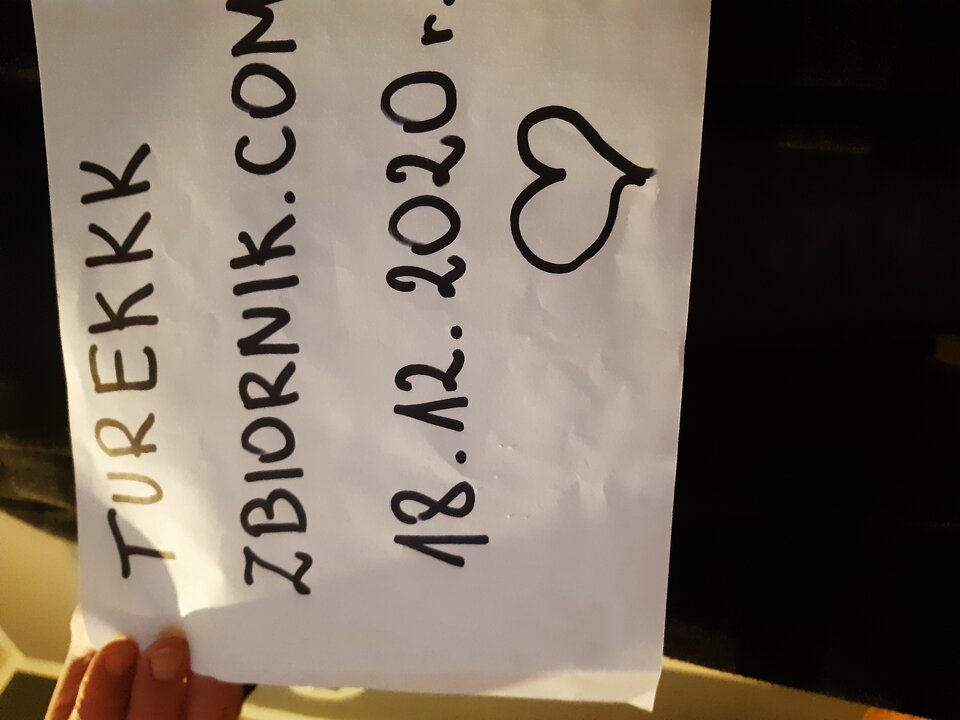 TUREKKK
ZBIORNIK.COM
18.12.2020 r.